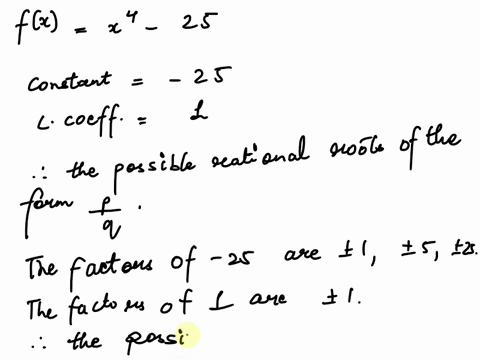 f(x) = x⁴ - 25
Constant = - 25
L. coeff. = 1
∴ the possible rational roots of the
form p/q .
The factors of -25 are ±1, ±5, ±25.
The factors of 1 are ±1.
∴ the possi